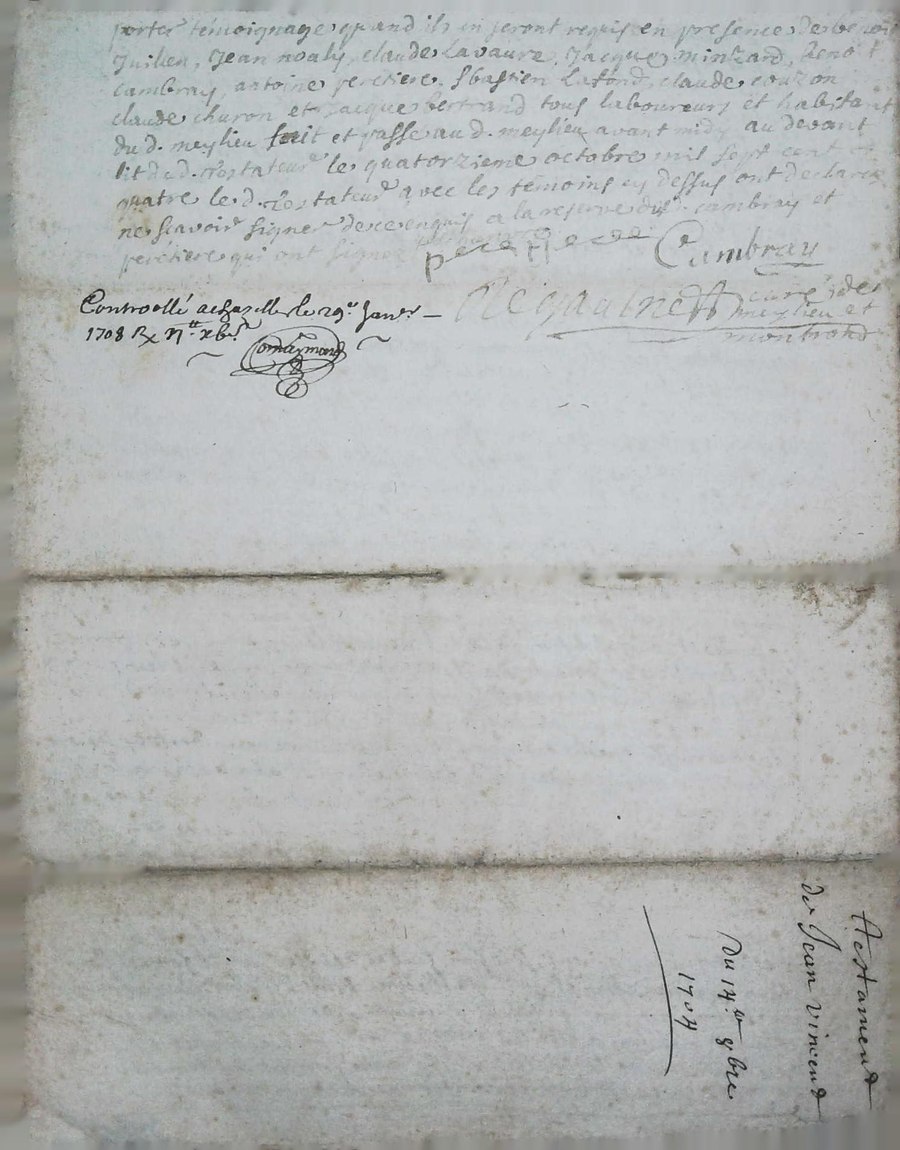 porter témoignage quand ils en seront requis en presence de
Julien, Jean noally, claude Lavaure, Jacques minzard,
cambray, antoine peretiere, Sbastien Lafond, claude couzon
claude charon et Jacque bertrand tous laboureurs et habitant
du d. meylieu fait et passe au d. meylieu avant midy au devant
lit du d. testateur le quatorzieme octobre mil sept cent
quatre le d. testateur avec les témoins cy dessus ont declarez
ne scavoir signer de ce enquis a la reserve des d. cambray et
peretiere qui ont signe
Cambray
curé de
meylieu et
montrond
Controollé a chazelle le 29e Janer
1708 Rx
Testament
de Jean vincend
Du 14e 8bre
1704